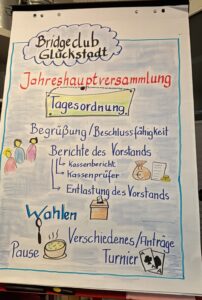 Bridgeclub
Glückstadt
Jahreshauptversammlung
Tagesordnung
Begrüßung/Beschlussfähigkeit
Berichte des Vorstands
Kassenbericht
Kassenprüfer
Entlastung des Vorstands
Wahlen
Verschiedenes/Anträge
Pause
Turnier